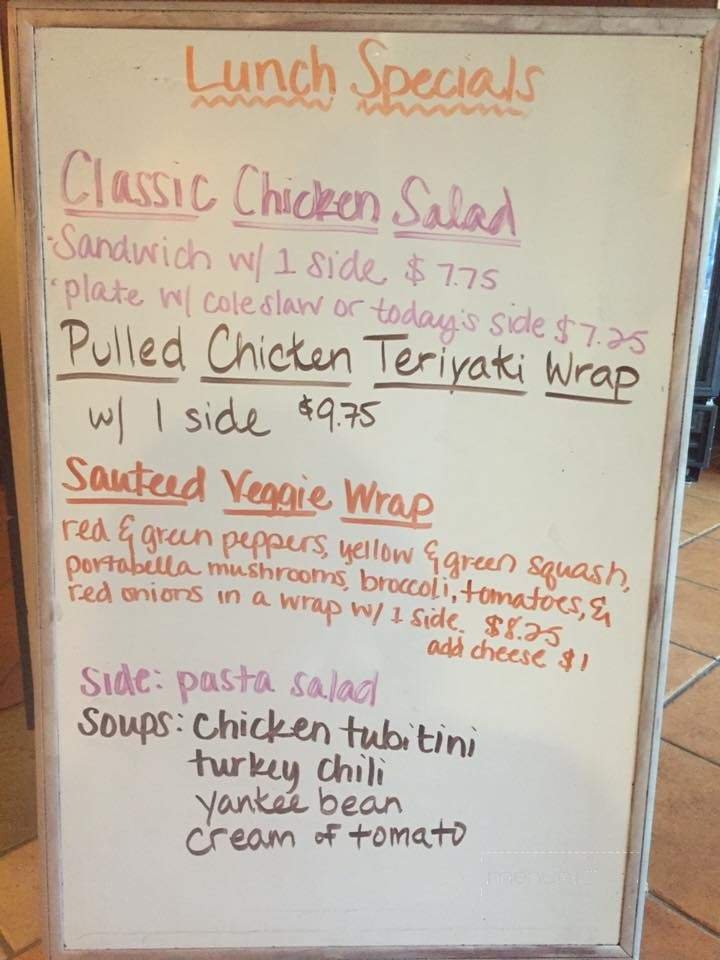 Lunch Specials
Classic Chicken Salad
·Sandwich w/ 1 side $7.75
·plate w/ coleslaw or today's side $7.25
Pulled Chicken Teriyaki Wrap
w/ 1 side $9.75
Sauteed Veggie Wrap
red & green peppers, yellow & green squash,
portabella mushrooms, broccoli, tomatoes, &
red onions in a wrap w/ 1 side. $8.25
add cheese $1
Side: pasta salad
Soups: Chicken tubitini
turkey chili
yankee bean
cream of tomato